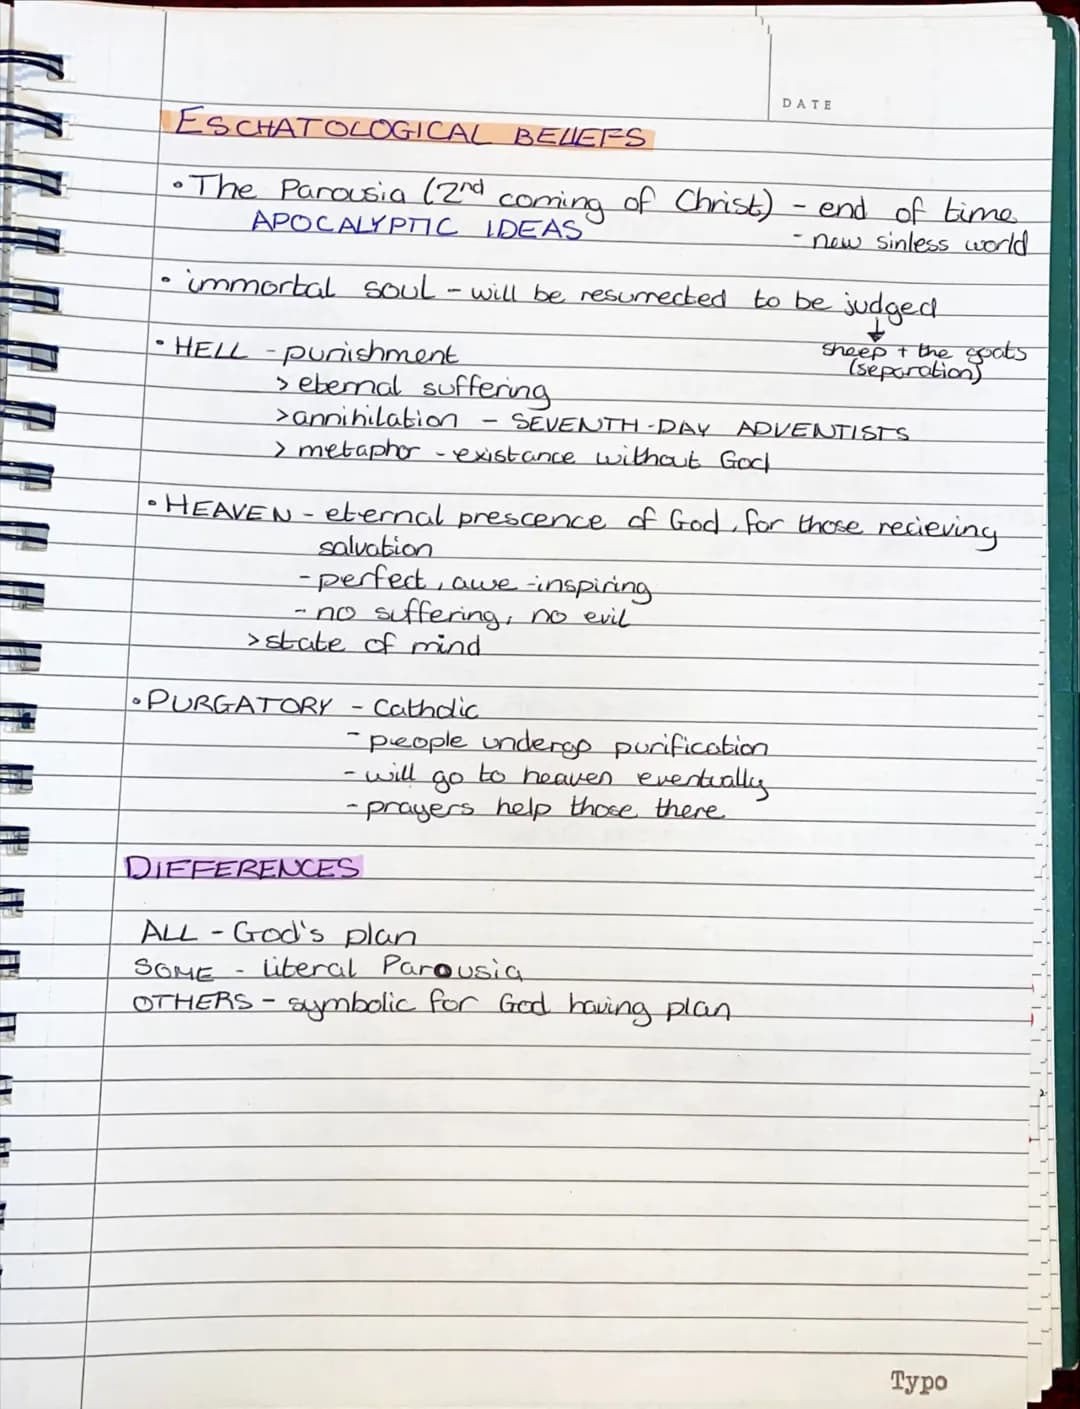 DATE
ESCHATOLOGICAL BELIEFS
• The Parousia (2nd coming of Christ) - end of time
APOCALYPTIC IDEAS - new sinless world
• immortal soul - will be resurrected to be judged
↓
sheep + the goats
(separation)
• HELL - punishment
> eternal suffering
> annihilation - SEVENTH-DAY ADVENTISTS
> metaphor - existance without God
• HEAVEN - eternal prescence of God, for those recieving
salvation
- perfect, awe-inspiring
- no suffering, no evil
> state of mind
• PURGATORY - Catholic
- people undergo purification
- will go to heaven eventually
- prayers help those there
DIFFERENCES
ALL - God's plan
SOME - literal Parousia
OTHERS - symbolic for God having plan
Typo